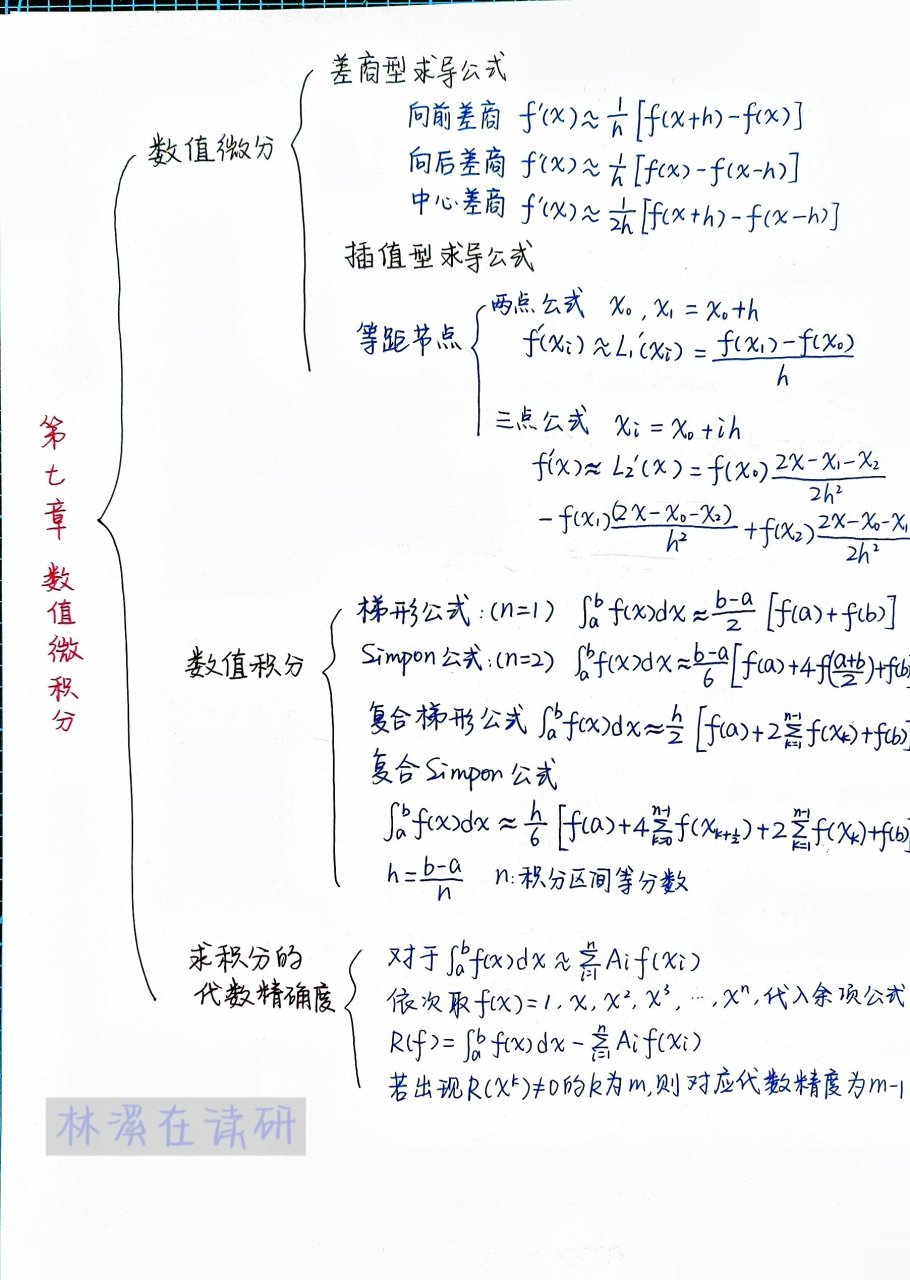 第七章 数值微积分
数值微分
差商型求导公式
向前差商 f′(x)≈1/h [f(x+h)−f(x)]
向后差商 f′(x)≈1/h [f(x)−f(x−h)]
中心差商 f′(x)≈1/2h [f(x+h)−f(x−h)]
插值型求导公式
等距节点
两点公式 x₀, x₁=x₀+h
f′(xᵢ)≈L₁′(xᵢ)=(f(x₁)−f(x₀))/h
三点公式 xᵢ=x₀+ih
f′(x)≈L₂′(x)=f(x₀)(2x−x₁−x₂)/2h²
−f(x₁)(2x−x₀−x₂)/h²+f(x₂)(2x−x₀−x₁)/2h²
数值积分
梯形公式:(n=1) ∫ₐᵇf(x)dx≈(b−a)/2 [f(a)+f(b)]
Simpon公式:(n=2) ∫ₐᵇf(x)dx≈(b−a)/6 [f(a)+4f((a+b)/2)+f(b)
复合梯形公式 ∫ₐᵇf(x)dx≈h/2 [f(a)+2∑ₖ₌₁ⁿ⁻¹f(xₖ)+f(b)]
复合Simpon公式
∫ₐᵇf(x)dx≈h/6 [f(a)+4∑ₖ₌₀ⁿ⁻¹f(x_{k+1/2})+2∑ₖ₌₁ⁿ⁻¹f(xₖ)+f(b)
h=(b−a)/n n:积分区间等分数
求积分的
代数精确度
对于∫ₐᵇf(x)dx≈∑ᵢ₌₁ⁿAᵢf(xᵢ)
依次取f(x)=1,x,x²,x³,…,xⁿ,代入余项公式
R(f)=∫ₐᵇf(x)dx−∑ᵢ₌₁ⁿAᵢf(xᵢ)
若出现R(xᵏ)≠0的k为m,则对应代数精度为m−1
林溪在读研